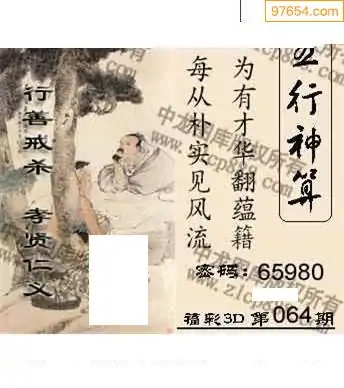 97654.com
五行神算
为有才华翻蕴籍
每从朴实见风流
行善戒杀 孝贤仁义
密码：65980
福彩3D 第064期
中龙图库版权所有
www.zlcp888.com